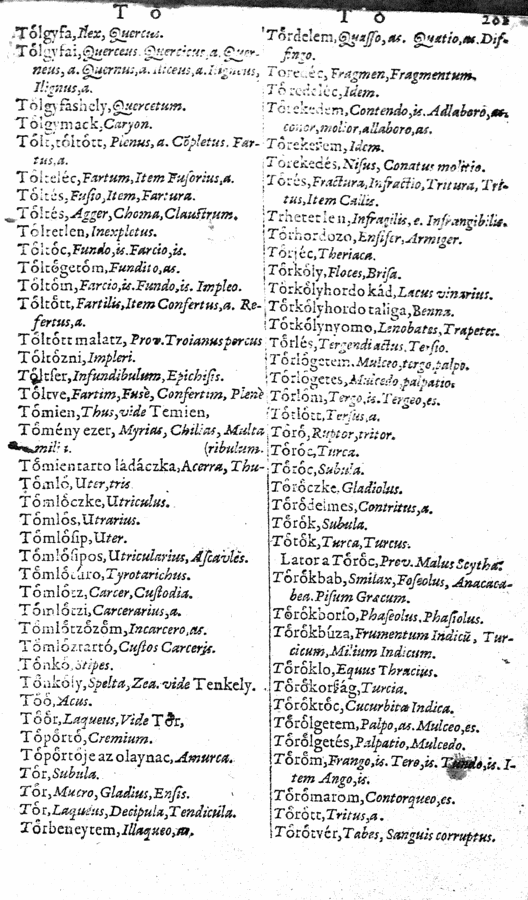 T Ő
Tőlgyfa, Ilex, Quercus.
Tőlgyfai, Querceus. Quercicus, a. Quer-
neus, a. Quernus, a. Iliceus, a. Iligneus,
Ilignus, a.
Tőlgyfáshely, Quercetum.
Tőlgymack, Caryon.
Tőlt, tőltőtt, Plenus, a. Cőpletus. Far-
tus, a.
Tőlteléc, Fartum, Item Fusorius, a.
Tőltés, Fusio, Item, Fartura.
Tőltés, Agger, Choma, Claustrum.
Tőltetlen, Inexpletus.
Tőltőc, Fundo, is. Farcio, is.
Tőltőgetőm, Fundito, as.
Tőltőm, Farcio, is. Fundo, is. Impleo.
Tőltőtt, Fartilis, Item Confertus, a. Re-
fertus, a.
Tőltőtt malatz, Prov. Troianus porcus
Tőltőzni, Impleri.
Tőltser, Infundibulum, Epichisis.
Tőltve, Fartim, Fusè, Confertum, Plenè
Tőmien, Thus, vide Temien,
Tőmény ezer, Myrias, Chilias, Multa
millia. (ribulum.
Tőmientarto ládáczka, Acerra, Thu-
Tőmlő, Uter, tris
Tőmlőczke, Utriculus.
Tőmlős, Utrarius.
Tőmlősip, Uter.
Tőmlősipos, Utricularius, Ascavles.
Tőmlőtúro, Tyrotarichus.
Tőmlőtz, Carcer, Custodia.
Tőmlőtzi, Carcerarius, a.
Tőmlőtzőzőm, Incarcero, as.
Tőmlőztartó, Custos Carceris.
Tőnkő, Stipes.
Tőnkőly, Spelta, Zea. vide Tenkely.
Tőő, Acus.
Tőőr, Laqueus, Vide Tőr,
Tőpőrtő, Cremium.
Tőpőrtője az olaynac, Amurca.
Tőr, Subula.
Tőr, Mucro, Gladius, Ensis.
Tőr, Laqueus, Decipula, Tendicula.
Tőrbeneytem, Illaqueo, as.
T Ő
Tőrdelem, Quasso, as. Quatio, as. Dif-
fingo.
Tőredéc, Fragmen, Fragmentum.
Tőredeléc, Idem.
Tőrekedem, Contendo, is. Adlaboro, as.
conor, molior, allaboro, as.
Tőrekešem, Idem.
Tőrekedés, Nisus, Conatus molitio.
Tőrés, Fractura, Infractio, Tritura, Tri-
tus, Item Callis.
Trhetetlen, Infragilis, e. Infrangibilis.
Tőrhordozo, Ensifer, Armiger.
Tőrjéc, Theriaca.
Tőrkőly, Floces, Brisa.
Tőrkőlyhordo kád, Lacus vinarius.
Tőrkőlyhordo taliga, Benna.
Tőrkőlynyomo, Lenobates, Trapetes.
Tőrlés, Tergendi actus. Tersio.
Tőrlőgetem. Mulceo, tergo, palpo.
Tőrlőgetes, Mulcedo, palpatio.
Tőrlőm, Tergo, is. Tergeo, es.
Tőrlőtt, Tersus, a.
Tőrő, Ruptor, tritor.
Tőrőc, Turca.
Tőrőc, Subula.
Tőrőczke, Gladiolus.
Tőrődelmes, Contritus, a.
Tőrők, Subula.
Tőrők, Turca, Turcus.
Lator a Tőrőc, Prov. Malus Scytha.
Tőrőkbab, Smilax, Foseolus, Anacaca-
bea. Pisum Græcum.
Tőrőkborso, Phaseolus, Phasiolus.
Tőrőkbúza, Frumentum Indicū, Tur-
cicum, Milium Indicum.
Tőrőklo, Equus Thracius.
Tőrőkország, Turcia.
Tőrőktőc, Cucurbita Indica.
Tőrőlgetem, Palpo, as. Mulceo, es.
Tőrőlgetés, Palpatio, Mulcedo.
Tőrőm, Frango, is. Tero, is. Tundo, is. I-
tem Ango, is.
Tőrőmarom, Contorqueo, es.
Tőrőtt, Tritus, a.
Tőrőtvér, Tabes, Sanguis corruptus.